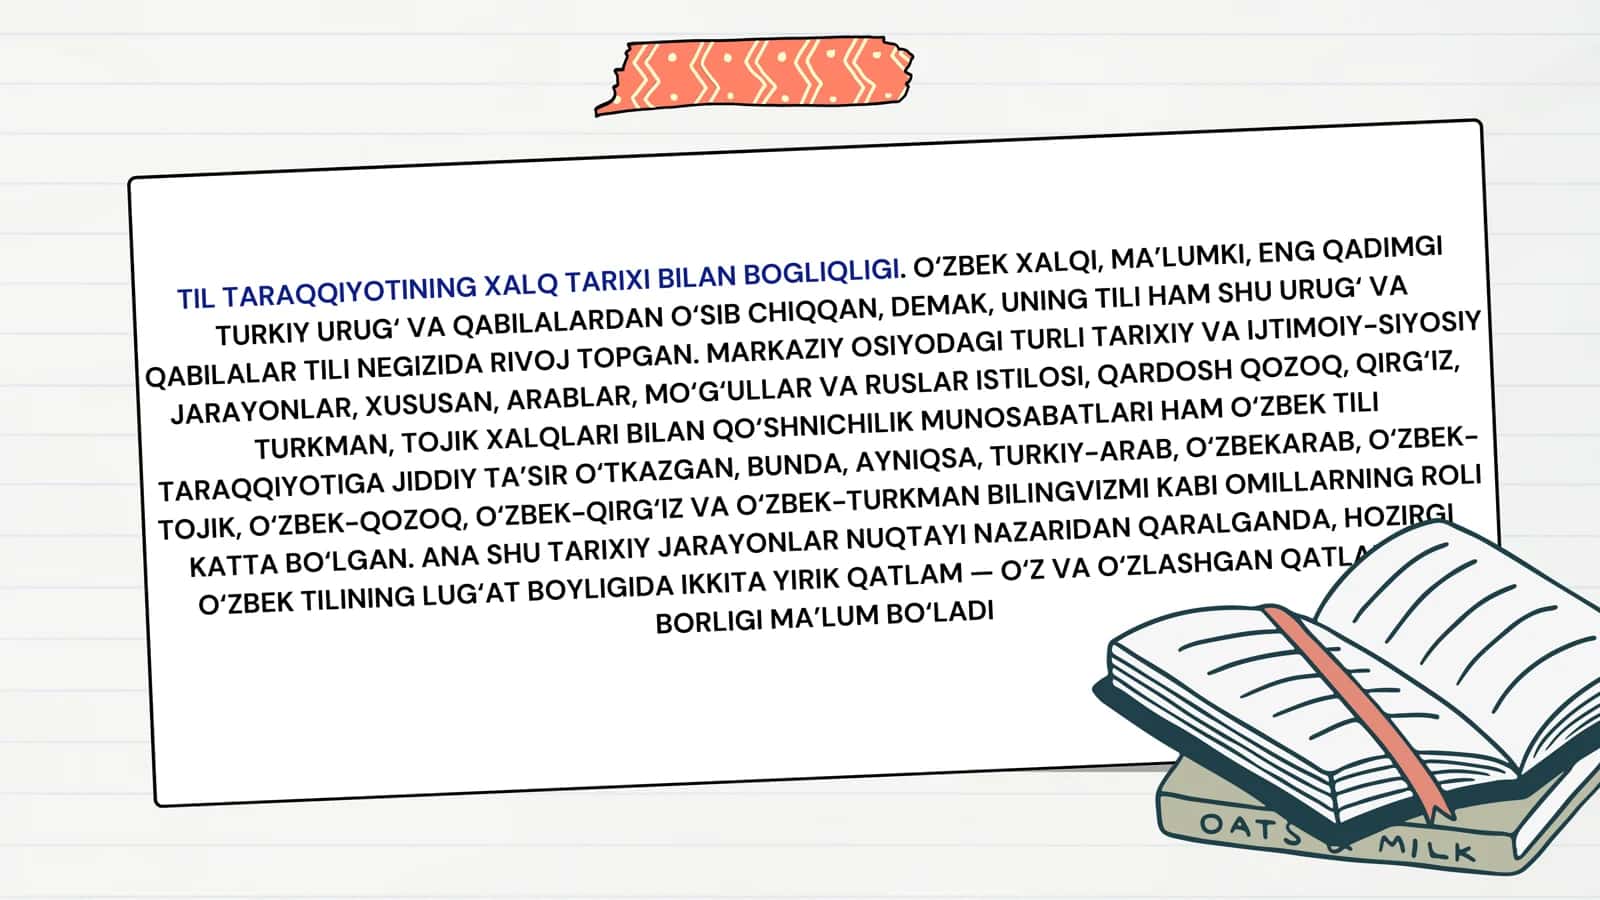 TIL TARAQQIYOTINING XALQ TARIXI BILAN BOGLIQLIGI. O‘ZBEK XALQI, MA’LUMKI, ENG QADIMGI
TURKIY URUG‘ VA QABILALARDAN O‘SIB CHIQQAN, DEMAK, UNING TILI HAM SHU URUG‘ VA
QABILALAR TILI NEGIZIDA RIVOJ TOPGAN. MARKAZIY OSIYODAGI TURLI TARIXIY VA IJTIMOIY-SIYOSIY
JARAYONLAR, XUSUSAN, ARABLAR, MO‘G‘ULLAR VA RUSLAR ISTILOSI, QARDOSH QOZOQ, QIRG‘IZ,
TURKMAN, TOJIK XALQLARI BILAN QO‘SHNICHILIK MUNOSABATLARI HAM O‘ZBEK TILI
TARAQQIYOTIGA JIDDIY TA’SIR O‘TKAZGAN, BUNDA, AYNIQSA, TURKIY-ARAB, O‘ZBEKARAB, O‘ZBEK-
TOJIK, O‘ZBEK-QOZOQ, O‘ZBEK-QIRG‘IZ VA O‘ZBEK-TURKMAN BILINGVIZMI KABI OMILLARNING ROLI
KATTA BO‘LGAN. ANA SHU TARIXIY JARAYONLAR NUQTAYI NAZARIDAN QARALGANDA, HOZIRGI
O‘ZBEK TILINING LUG‘AT BOYLIGIDA IKKITA YIRIK QATLAM — O‘Z VA O‘ZLASHGAN
BORLIGI MA’LUM BO‘LADI
OATS & MILK